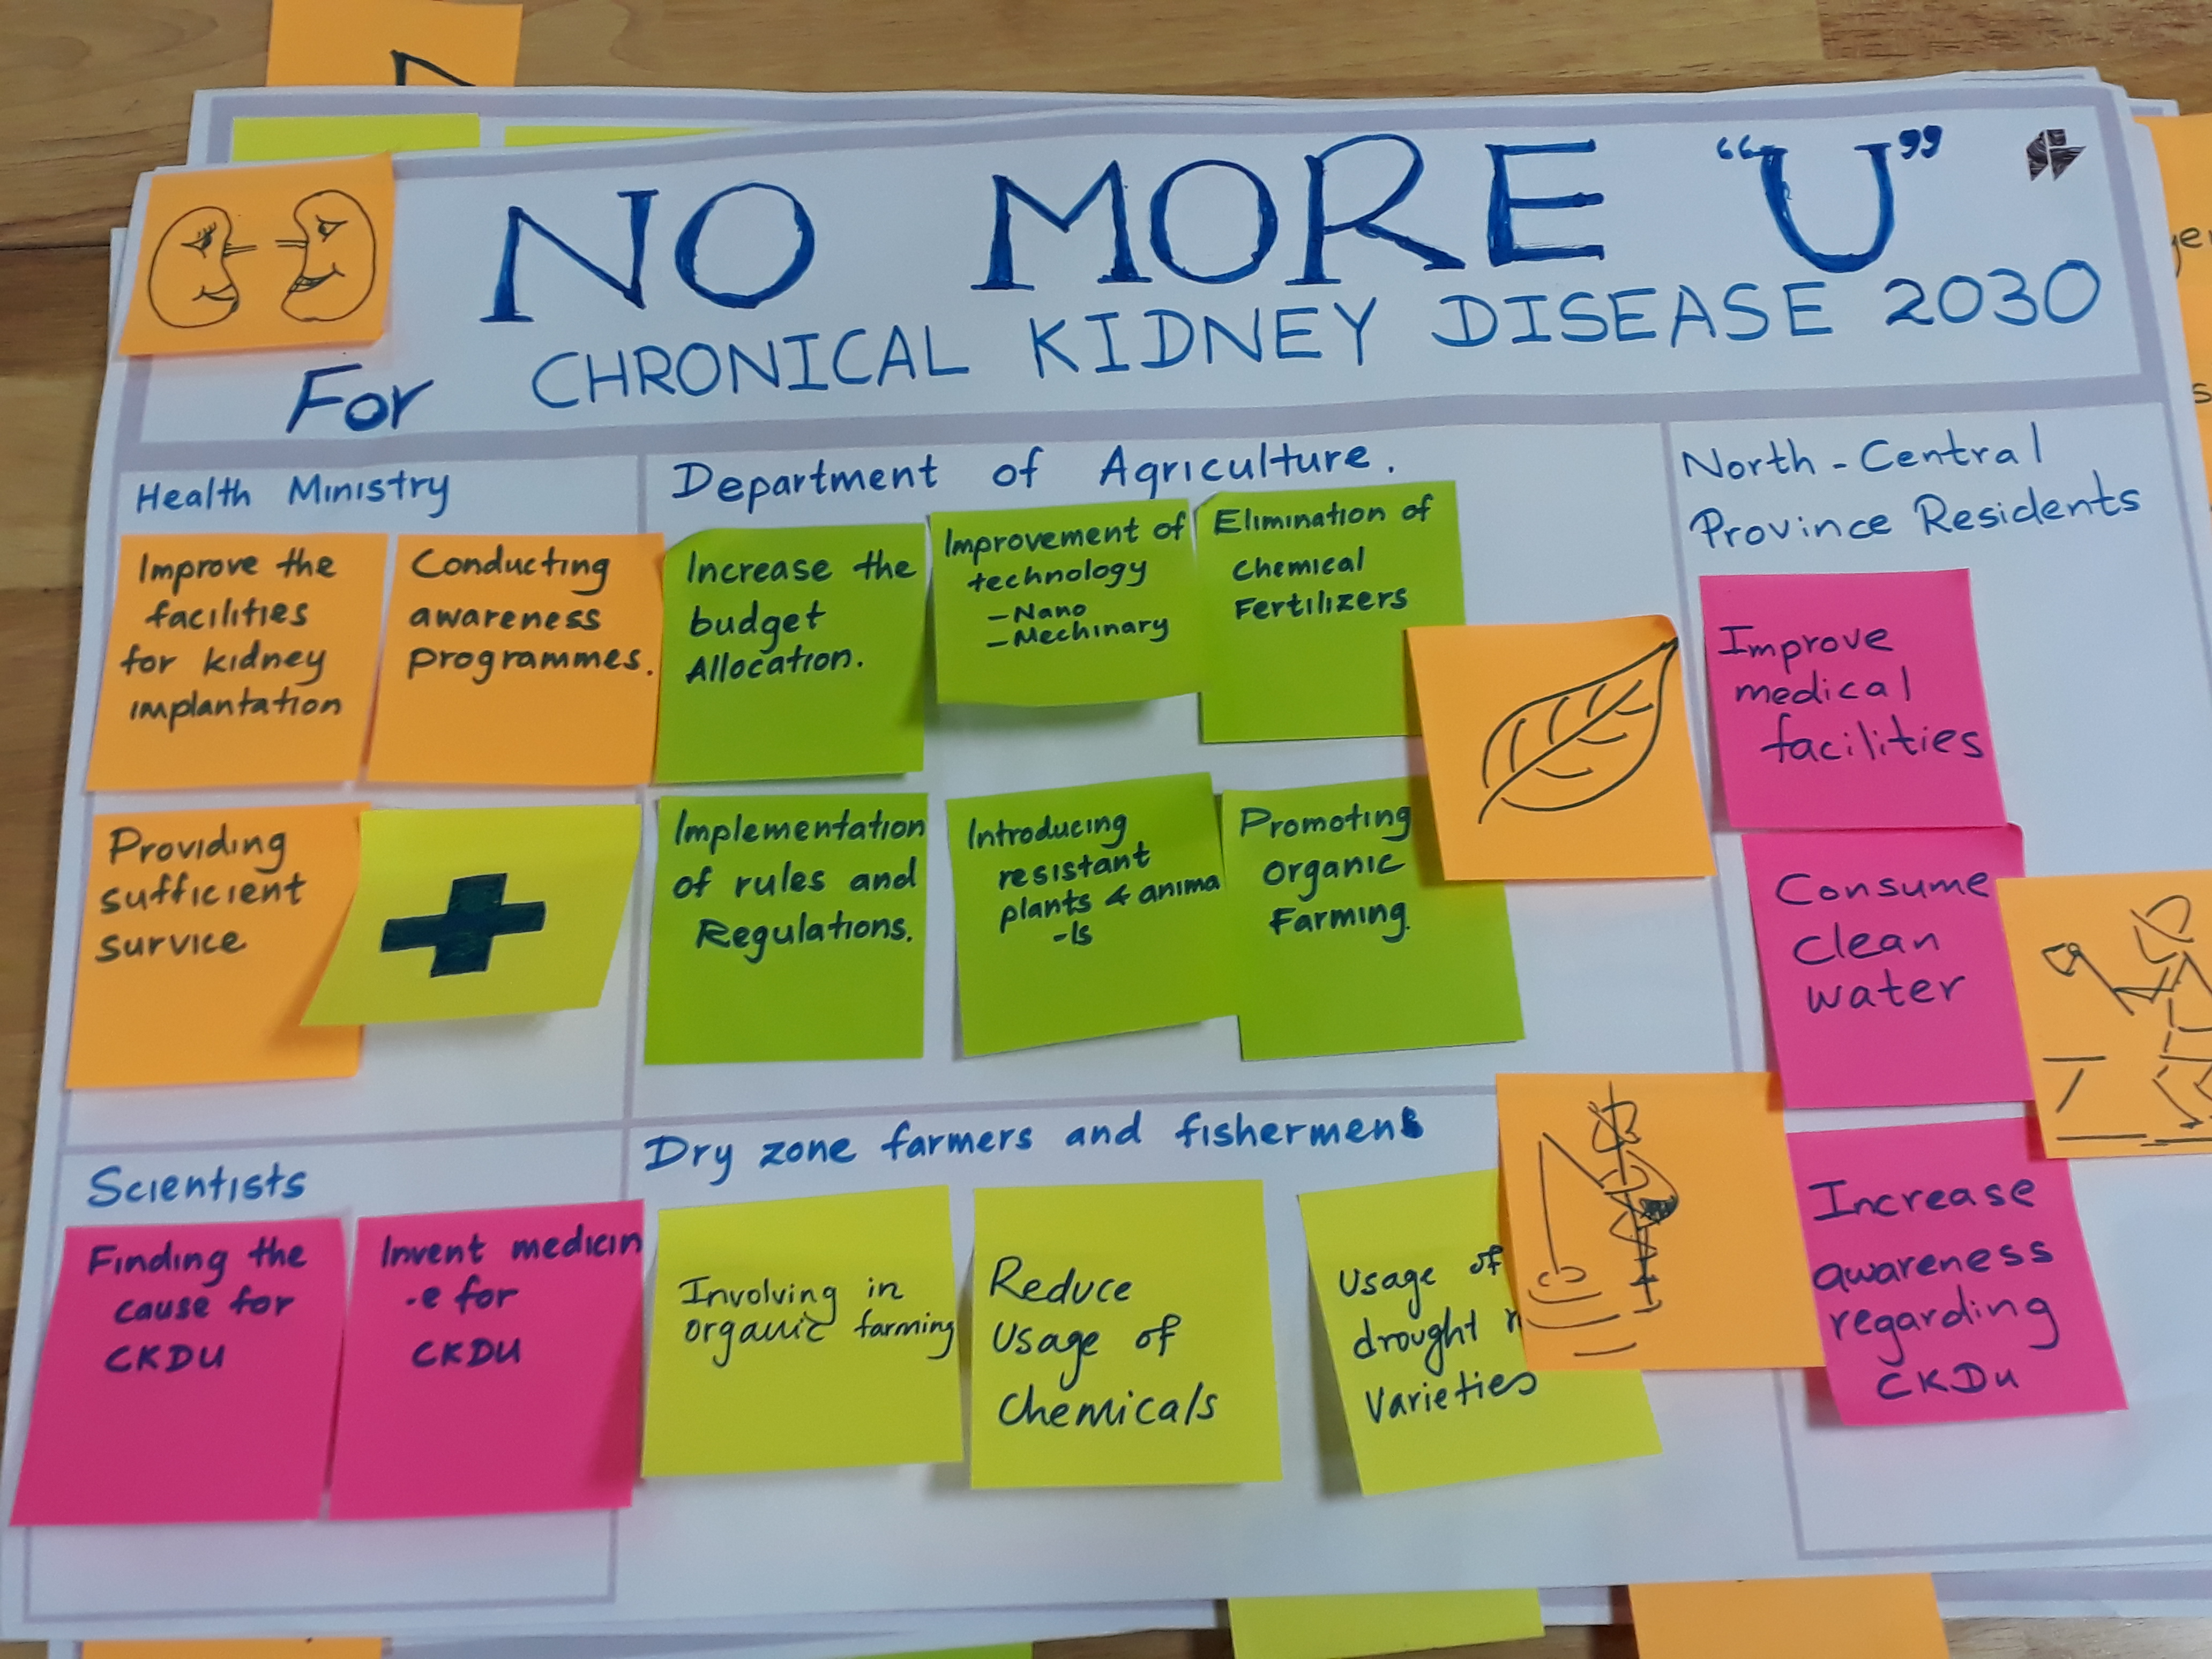 NO MORE “U”
For CHRONICAL KIDNEY DISEASE 2030
Health Ministry
Improve the
facilities
for kidney
implantation
Conducting
awareness
programmes.
Providing
sufficient
survice
Department of Agriculture.
Increase the
budget
Allocation.
Improvement of
technology
-Nano
-Mechinary
Elimination of
chemical
Fertilizers
Implementation
of rules and
Regulations.
Introducing
resistant
plants & anima
-ls
Promoting
organic
Farming.
North-Central
Province Residents
Improve
medical
facilities
Consume
clean
water
Increase
awareness
regarding
CKDu
Scientists
Finding the
cause for
CKDU
Invent medicin
-e for
CKDU
Dry zone farmers and fishermens
Involving in
organic farming
Reduce
Usage of
Chemicals
Usage of
drought
Varieties